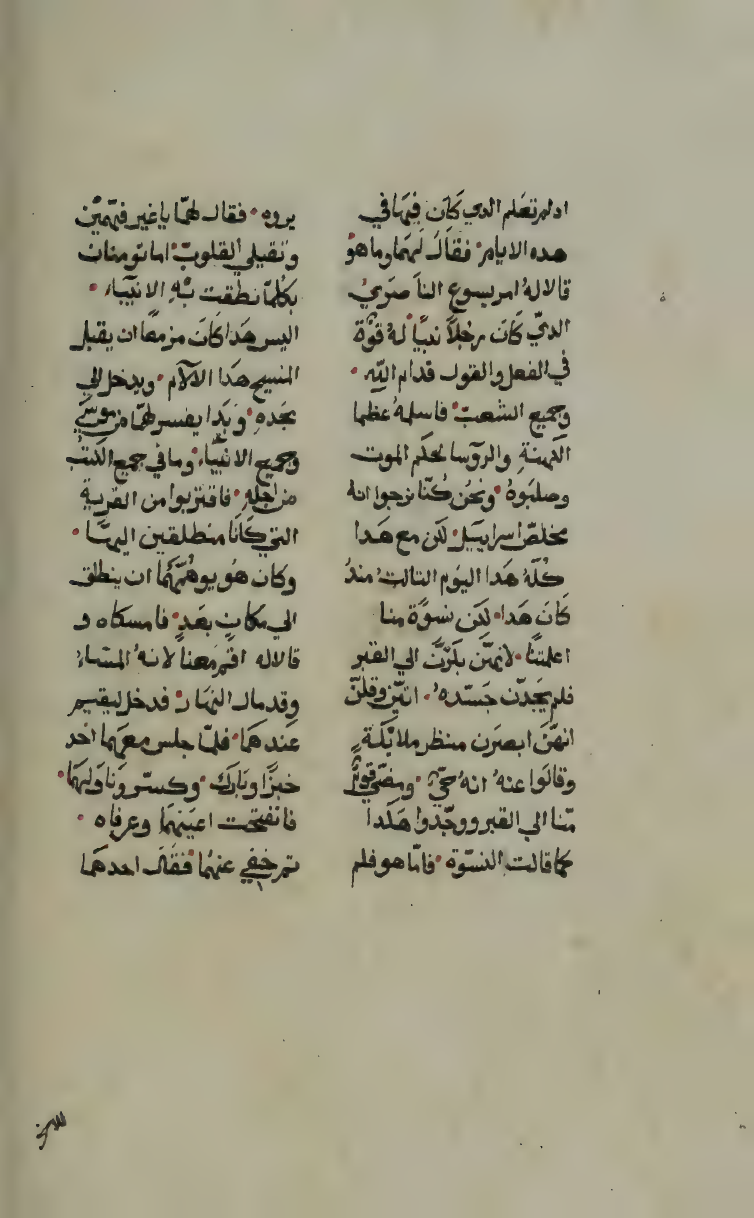 ادلم تعلم الدي كان فيها في
هده الايام فقال لهما وما هو
قالا له امر يسوع الناصري
الدي كان رجلا نبيا له قوة
في الفعل والقول قدام الله
وجميع الشعب فاسلمه عظما
الكهنة والروسا لحكم الموت
وصلبوه ونحن كنا نرجوا انه
مخلص اسراييل لكن مع هدا
كله هدا اليوم التالت مند
كان هدا لكن نسوة منا
اعلمتنا لانهن بكرن الي القبر
فلم يجدن جسده اتين وقلن
انهن ابصرن منظر ملايكة
وقالوا عنه انه حي ومضي قوم
منا الي القبر ووجدوا هكدا
كما قالت النسوة فاما هو فلم
يروه فقال لهما يا غير فهمين
وتقيلي القلوب اما تومنان
بكلما نطقت به الانبياء
اليس هدا كان مزمعا ان يقبل
المسيح هدا الالام ويدخل الي
مجده وبدا يفسر لهما من موسي
وجميع الانبياء وما في جميع الكتب
من اجله فاقتربوا من القرية
التي كانا منطلقين اليها
وكان هو يوهمهما ان ينطلق
الي مكان بعد فامسكاه و
قالا له اقم معنا لانه المساء
وقد مال النهار فدخل ليقيم
عندهما فلما جلس معهما اخد
خبزا وبارك وكسر وناولهما
فانفتحت اعينهما وعرفاه
تم خفي عنهما فقال احدهما